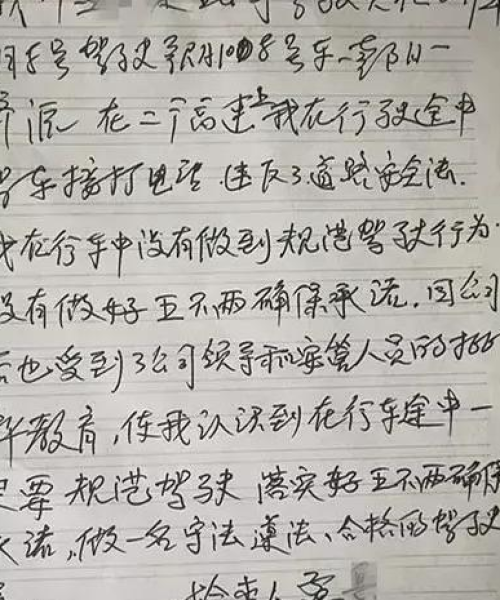 月8号驾驶豫H1008号车
济源 在二广高速上我在行驶途中
驾车接打电话.违反了道路安全法.
我在行车中没有做到规范驾驶行为.
没有做好五不两确保承诺.回公司
后也受到了公司领导和安管人员的批
评教育,使我认识到在行车途中一
定要规范驾驶 落实好五不两确保
承诺,做一名守法遵法、合格的驾驶
检查人